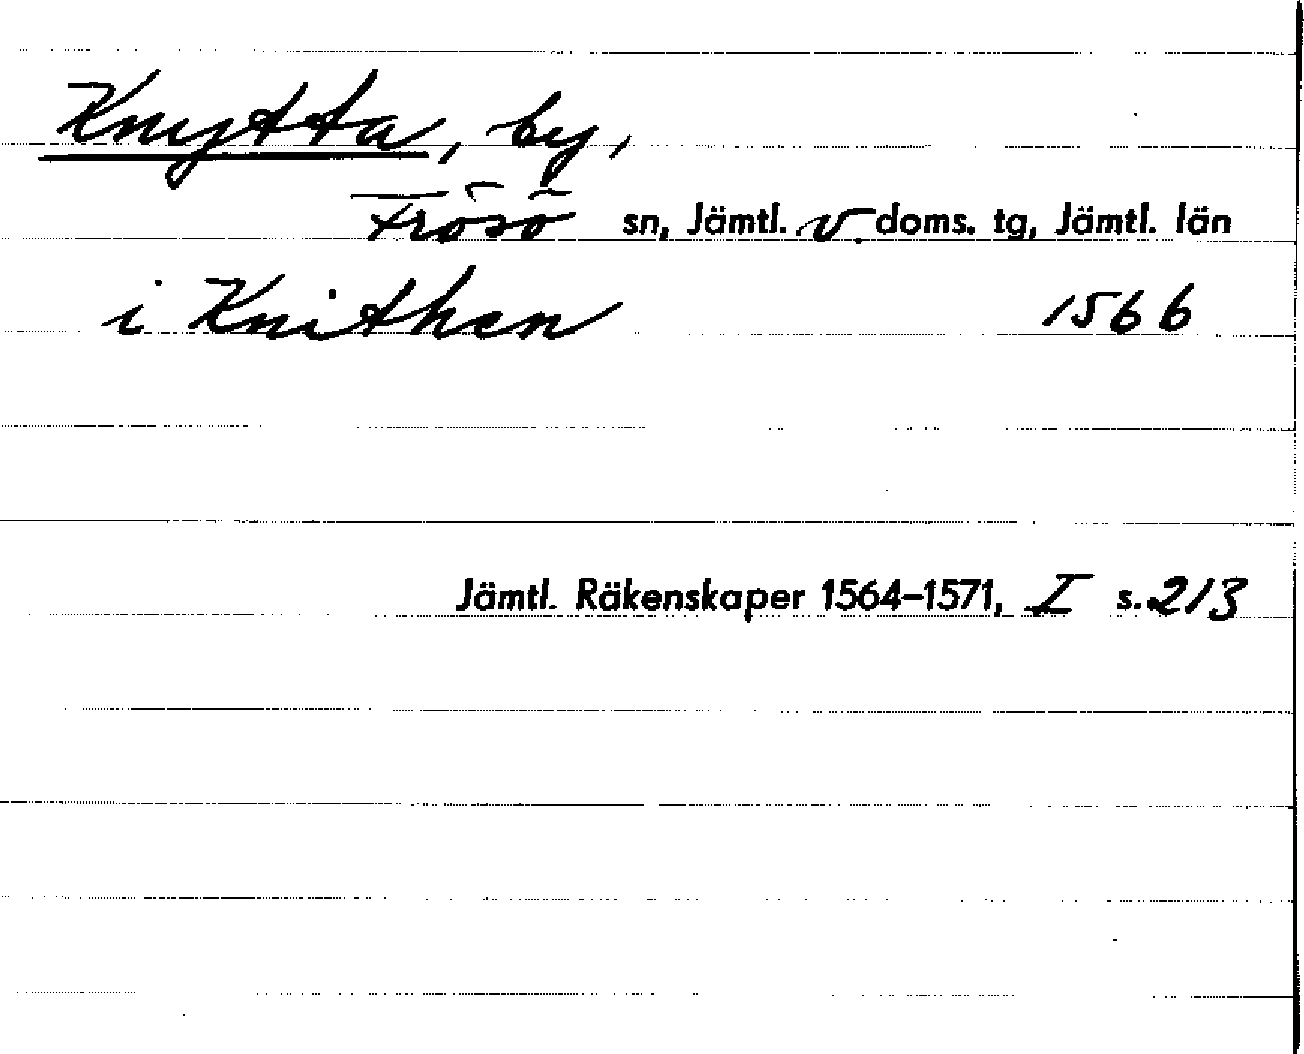 Knytta, by,
Frösö sn, Jämtl. v. doms. tg, Jämtl. län
i Knithen 1566
Jämtl. Räkenskaper 1564–1571, I s. 213